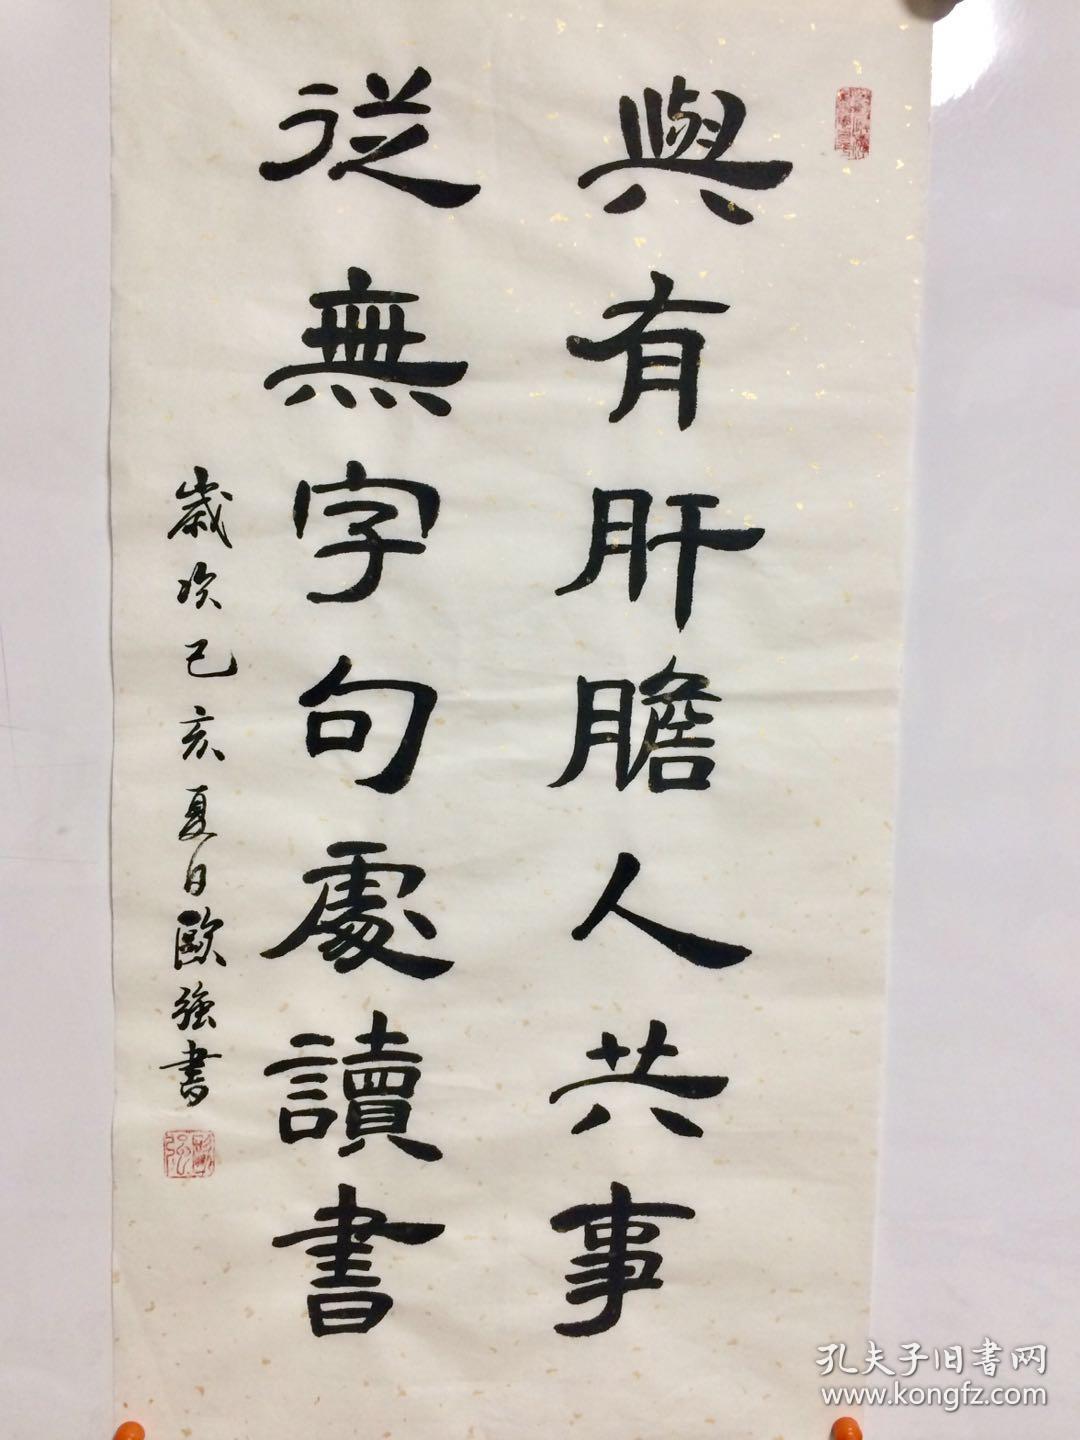 與有肝膽人共事
從無字句處讀書
歲次己亥夏日歐強書
孔夫子旧書网
www.kongfz.com